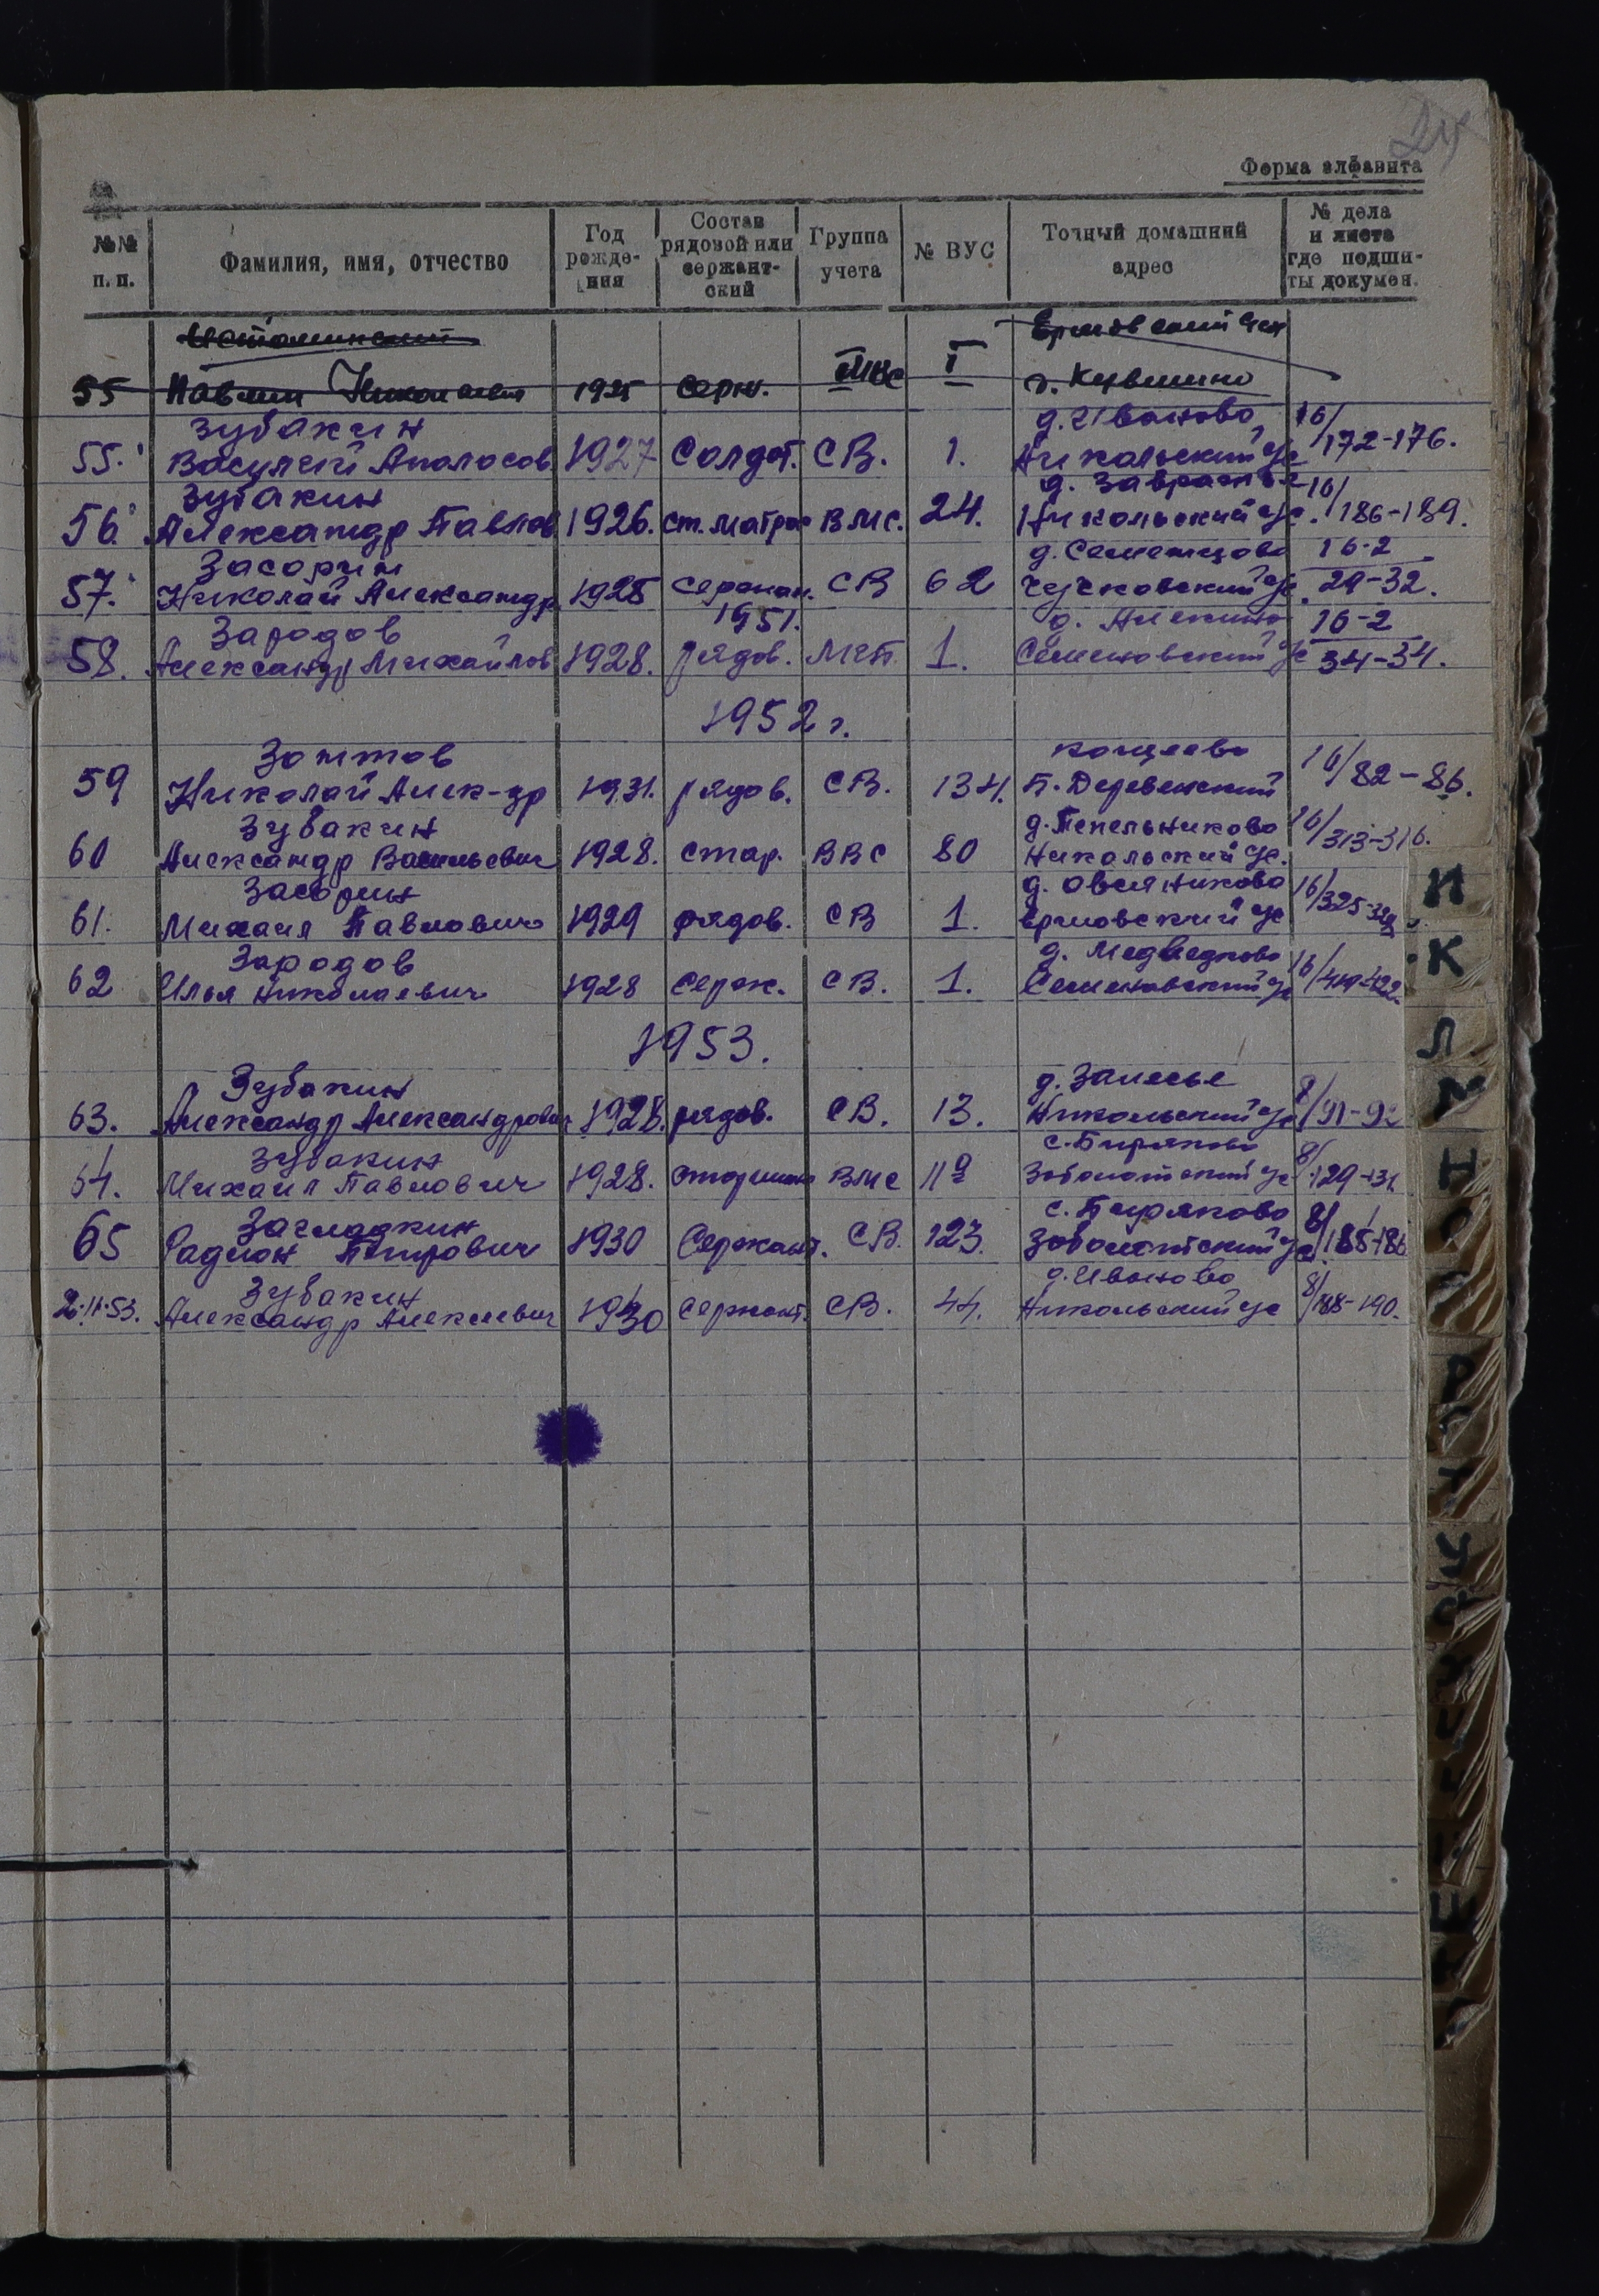 24
Форма алфавита
№№ п.п. Фамилия, имя, отчество Год рожде-ния Состав рядовой или сержант-ский Группа учета № ВУС Точный домашний адрес № дела и листа где подши-ты докумен.
55 Павлин 1925 серж. I г. Кувшино
Зубакин д. Иваново 16/
55. Василий Аполосов 1927 Солдат. СВ. 1. Никольский с/с 172-176.
Зубакин д. Завражье 16/
56. Александр Павлов 1926. ст. матрос ВМС. 24. Никольский с/с. 186-189.
Засорин д. Семенцово 16-2
57. Николай Александр 1925 Сержан. СВ 62 с/с. 29-32.
1951.
Зародов д. Аникино 16-2
58. Александр Михайлов 1928. рядов. МСП 1. Семеновский с/с 34-34.
1952 г.
Зоттов
59 Николай Алек-др 1931. рядов. СВ. 134. Б. Деревенский 16/82-86.
Зубакин д. Пепельниково
60 Александр Васильевич 1928. стар. ВВС 80 Никольский с/с. 16/313-316.
Засорин д. Овсянниково
61. Михаил Павлович 1929 рядов. СВ 1. Ермовский с/с 16/325-328
Зародов д. Медведково
62 Илья Николаевич 1928 Серж. СВ. 1. Семеновский с/с 16/419-422.
1953.
Зубакин д. Залесье
63. Александр Александрович 1928. рядов. СВ. 13. Никольский с/с 8/91-92
Зубакин с. Биряково
64. Михаил Павлович 1928. старшина ВМС 11а Заболотский с/с 8/129-131.
Загладкин с. Биряково
65 Радион Петрович 1930 Сержант. СВ. 123. Заболотский с/с 8/185-186
Зубакин д. Иваново
2.11.53. Александр Алексеевич 1930 Сержант. СВ. 44. Никольский с/с 8/188-190.
И
К
Л
М
Н
О
П
Р